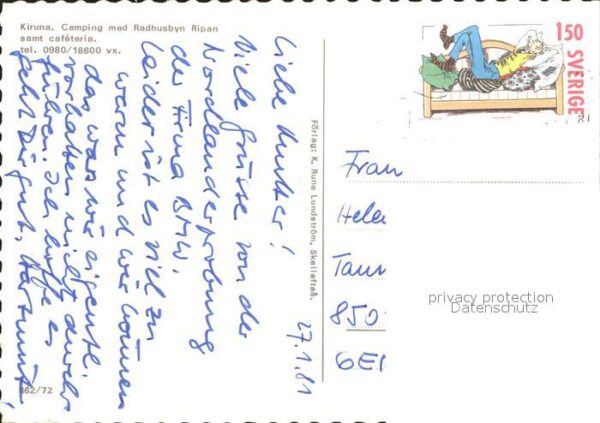 Kiruna. Camping med Rådhusbyn Ripan
samt cafeteria.
tel. 0980/18600 vx.
27.1.81
Liebe Mutter!
Viele Grüsse von der
Nordlanderprobung
der Firma BMW.
Leider ist es viel zu
warm und wir können
das was wir eigentl.
vorhatten nicht durch-
führen. Ich hoffe es
geht Dir gut, Hartmut
162/72
Förlag: K. Rune Lundström, Skellefteå.
150
SVERIGE
Frau
Hele
Taun
850
GER
privacy protection
Datenschutz